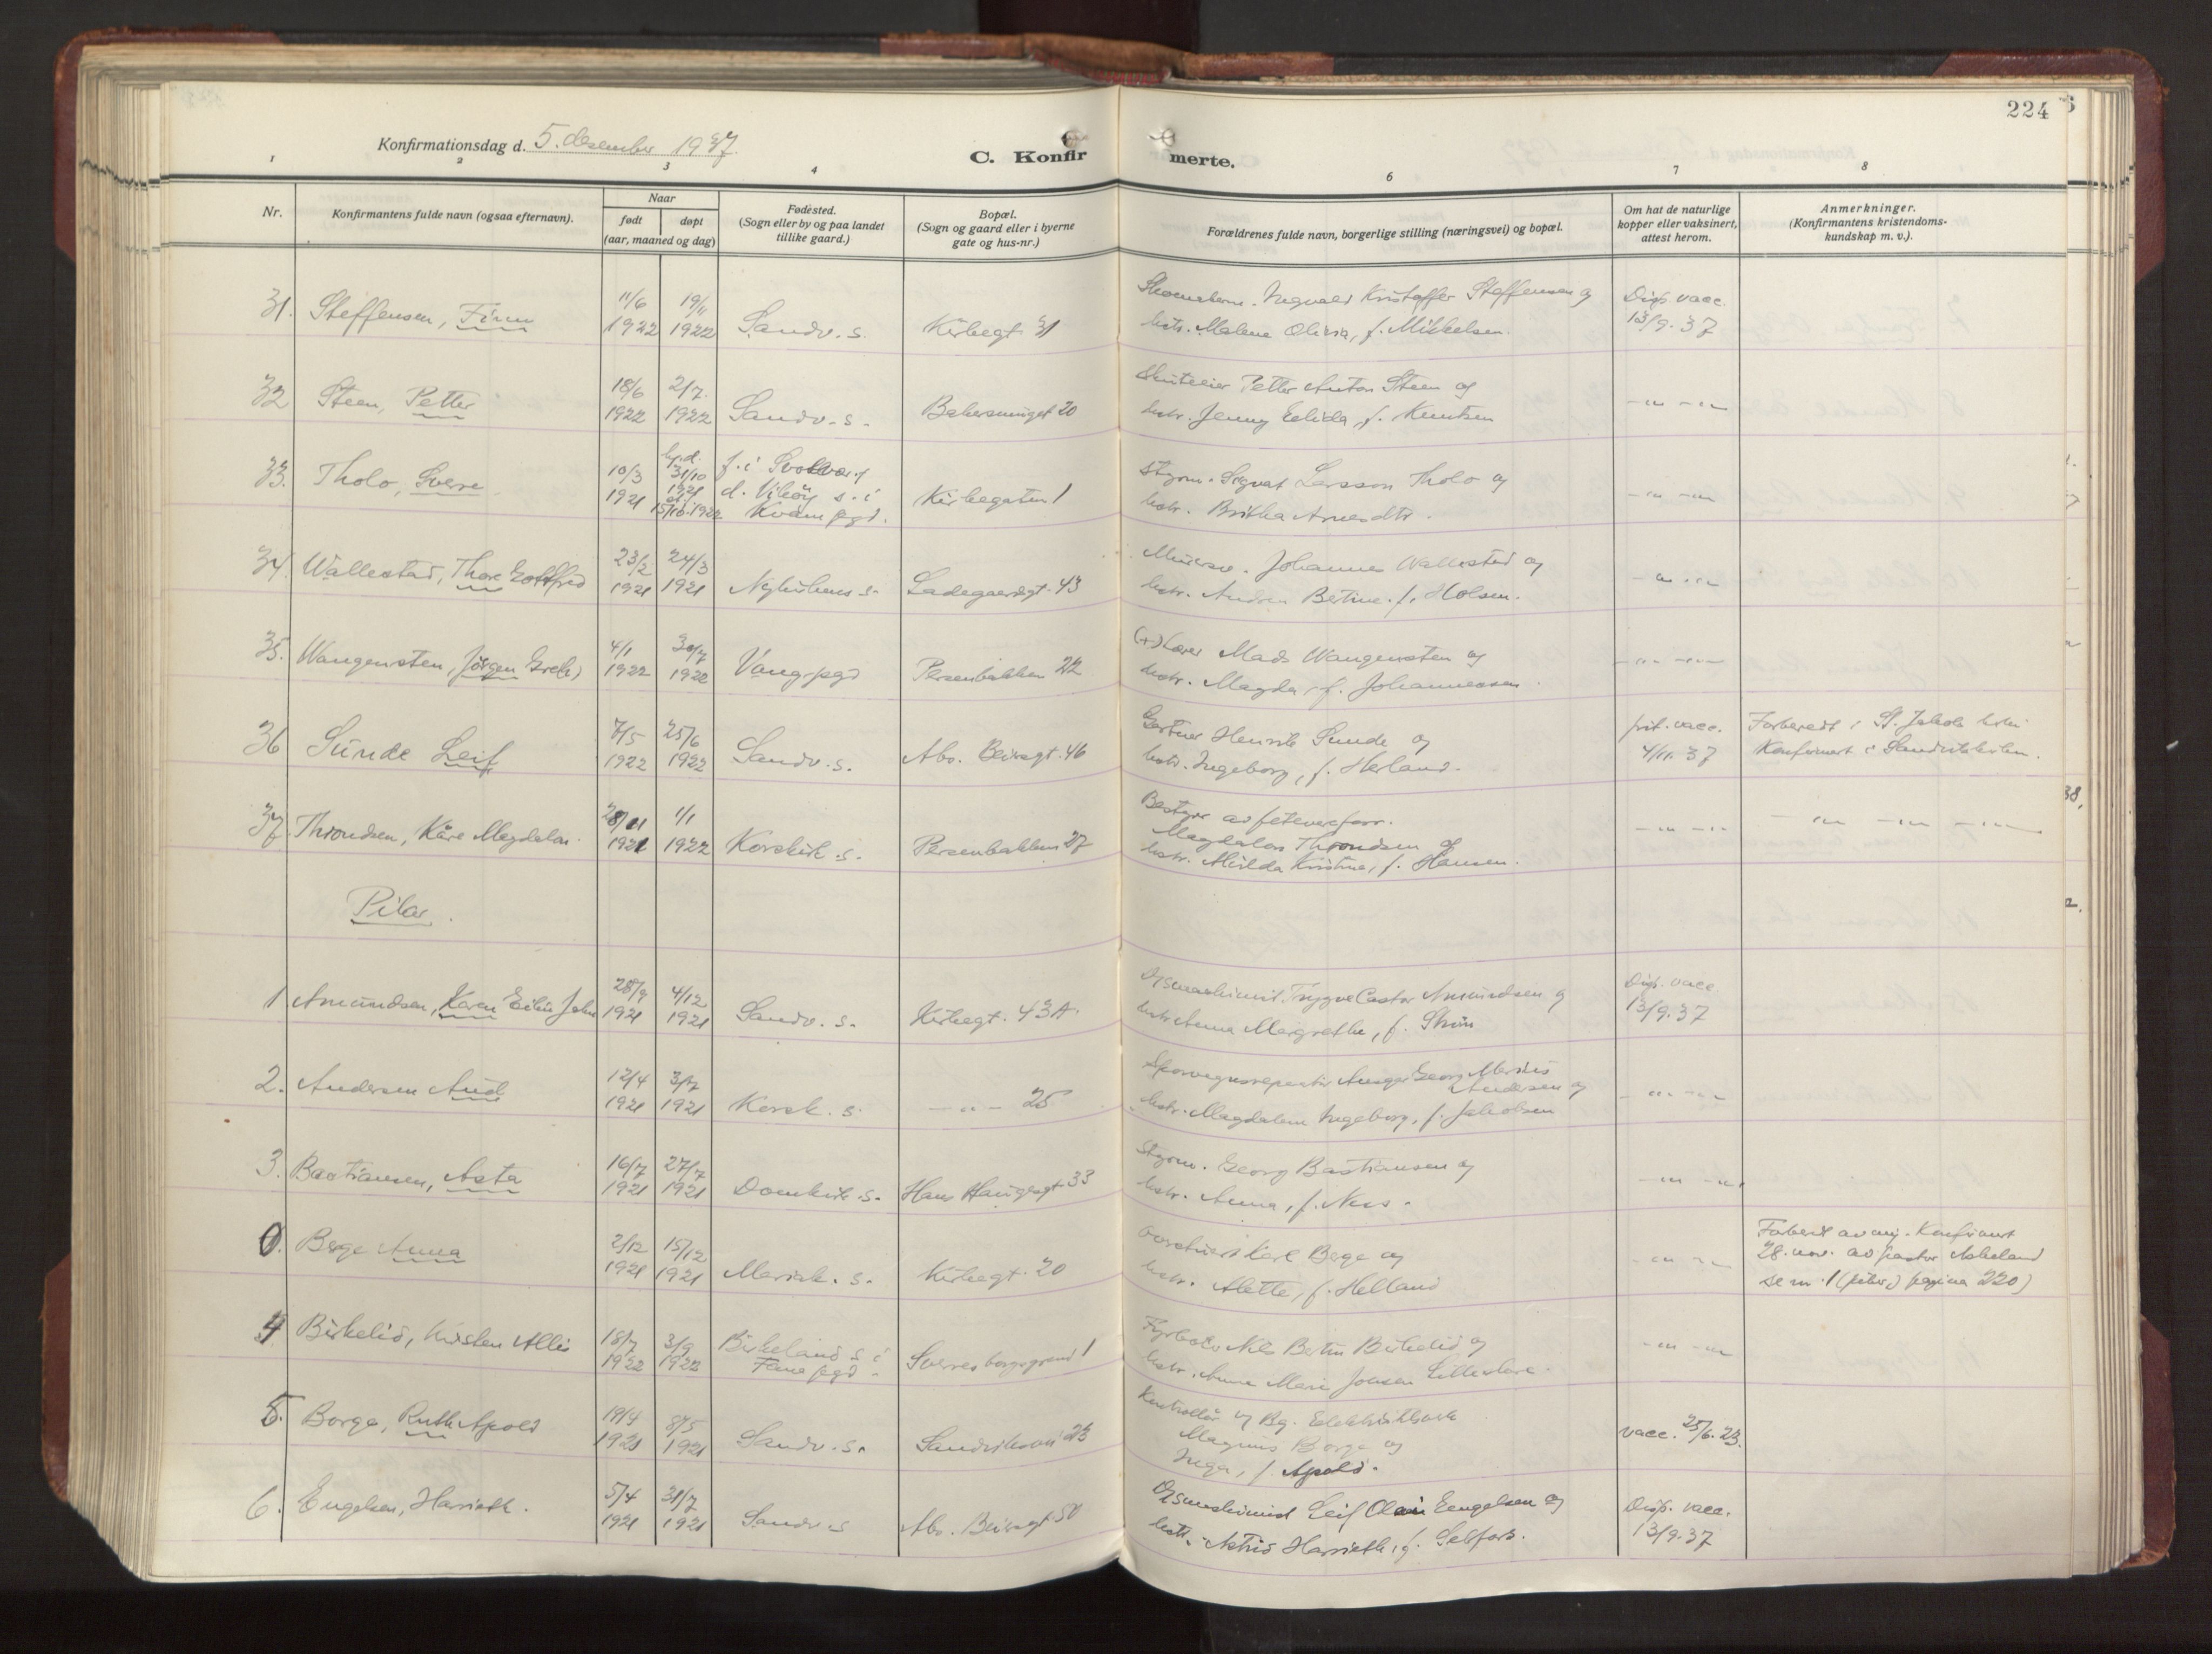 224
Konfirmationsdag d. 5. desember 1937.
C. Konfirmerte.
1 2 3 4 6 7 8
Nr.
Konfirmantens fulde navn (ogsaa efternavn).
Naar
født døpt
(aar, maaned og dag)
Fødested.
(Sogn eller by og paa landet
tillike gaard.)
Bopæl.
(Sogn og gaard eller i byerne
gate og hus-nr.)
Forældrenes fulde navn, borgerlige stilling (næringsvei) og bopæl.
Om hat de naturlige
kopper eller vaksinert,
attest herom.
Anmerkninger.
(Konfirmantens kristendoms-
kundskap m. v.).
31. Steffensen, Finn 11/6 1922 19/11 1922 Sandv. s. Kirkegt. 31
Ingvald Kristoffer Steffensen og
hstr. Malene Olivia, f. Mikkelsen.
Disp. vacc.
13/9. 37
32 Steen, Petter 18/6 1922 2/7. 1922 Sandv. s. Bakersmuget 20
Petter Anton Steen og
hstr. Jenny Edida, f. Knutsen
-"- -"-
33. Tholo, Sverre 10/3 1921 hj.d. 31/10 1921 15/10.1922 f. i Svolvær,
d. Vikøy s. i
Kvam pgd. Kirkegaten 1
Styrm. Sigvat Larsson Tholo og
hstr. Britha Arnesdtr.
-"- -"-
34. Wallestad, Thore Gottfred 23/2 1921 24/3 1921 Nykirkens s. Ladegaardsgt. 43
Johannes Wallestad og
hstr. Andrea Bertine f. Holsen.
-"- -"-
35. Wangensten, Jørgen 4/1 1922 30/7 1922 Vang pgd Persenbakken 22
(+) Lærer Mads Wangensten og
hstr. Magda, f. Johannessen.
-"- -"-
36 Sunde Leif 7/5 1922 25/6 1922 Sandv. s. Abs. Beiersgt. 46
Gartner Henrik Sunde og
hstr. Ingeborg, f. Herland.
vacc.
4/11. 37
Forberedt i St. Jakob
Konfirmert i Sandvikskirken.
37. Throndsen, Kåre Magdalon. 28/11 1921 1/1 1922 Korskirk. s. Persenbakken 27
Bestyrer av
Magdalon Throndsen og
hstr. Kristine, f. Hansen.
-"- -"-
-"- -"- -"-
Piker.
1 Amundsen, Karen 28/9 1921 4/12 1921 Sandv. s. Kirkegt. 43 A.
Trygve Castor Amundsen og
hstr Anna Margrethe, f. Strøm
Disp. vacc.
13/9. 37
2. Andersen Aud 12/4 1921 3/7 1921 Korsk. s. -"- 25
Sporvegnsreparatør Ansgar Georg
Andersen og
hstr. Magdalene Ingeborg, f. Jakobsen
-"- -"-
3. Bastiansen, Asta 16/7 1921 27/7 1921 Domkirk. s. Hans Haugesgt 33
Styrm. Georg Bastiansen og
hstr. Anna, f. Ness.
-"- -"-
0. Berge Anna 2/12 1921 15/12 1921 Mariak. s. Kirkegt. 20
Karl Berge og
hstr. Alette, f. Helland
-"- -"-
Forberedt av mig. Konfirmert
28. nov. av pastor Askeland
se nr. 1 (piker) pagina 220)
4 Birkelid, Kirsten Allis 18/7 1922 3/9 1922 Birkeland s. i
Fana pgd. Sverresborgsgrend 1
Fyrbøter Nils Bertin Birkelid og
hstr. Anna Marie Jonsen
-"- -"-
5. Borge, Ruth Apold 19/4 1921 8/5 1921 Sandv. s. Sandviksvei 23
Kontrollør v Bg. Elektrisitetsverk
Magnus Borge og
Inga, f. Apold.
vacc. 25/6. 23.
6. Engelsen, Harrieth. 5/4 1921 31/7 1921 Sandv. s Abs. Beiersgt 50
Leif Olai Eengelsen og
hstr. Astrid Harrieth, f. Selfors.
Disp. vacc.
13/9. 37